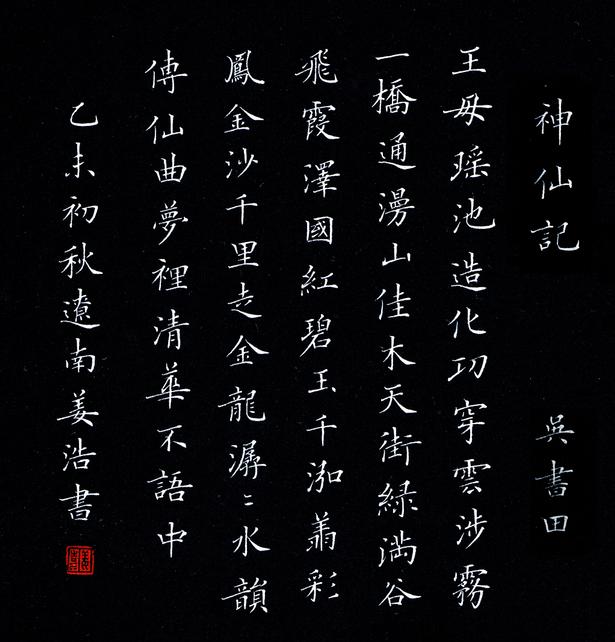 神仙記　吳書田
王母瑶池造化功穿雲涉霧
一橋通漫山佳木天街綠滿谷
飛霞澤國紅碧玉千泓彩
鳳金沙千里走金龍潺〻水韻
傳仙曲夢裡清華不語中
乙未初秋遼南姜浩書